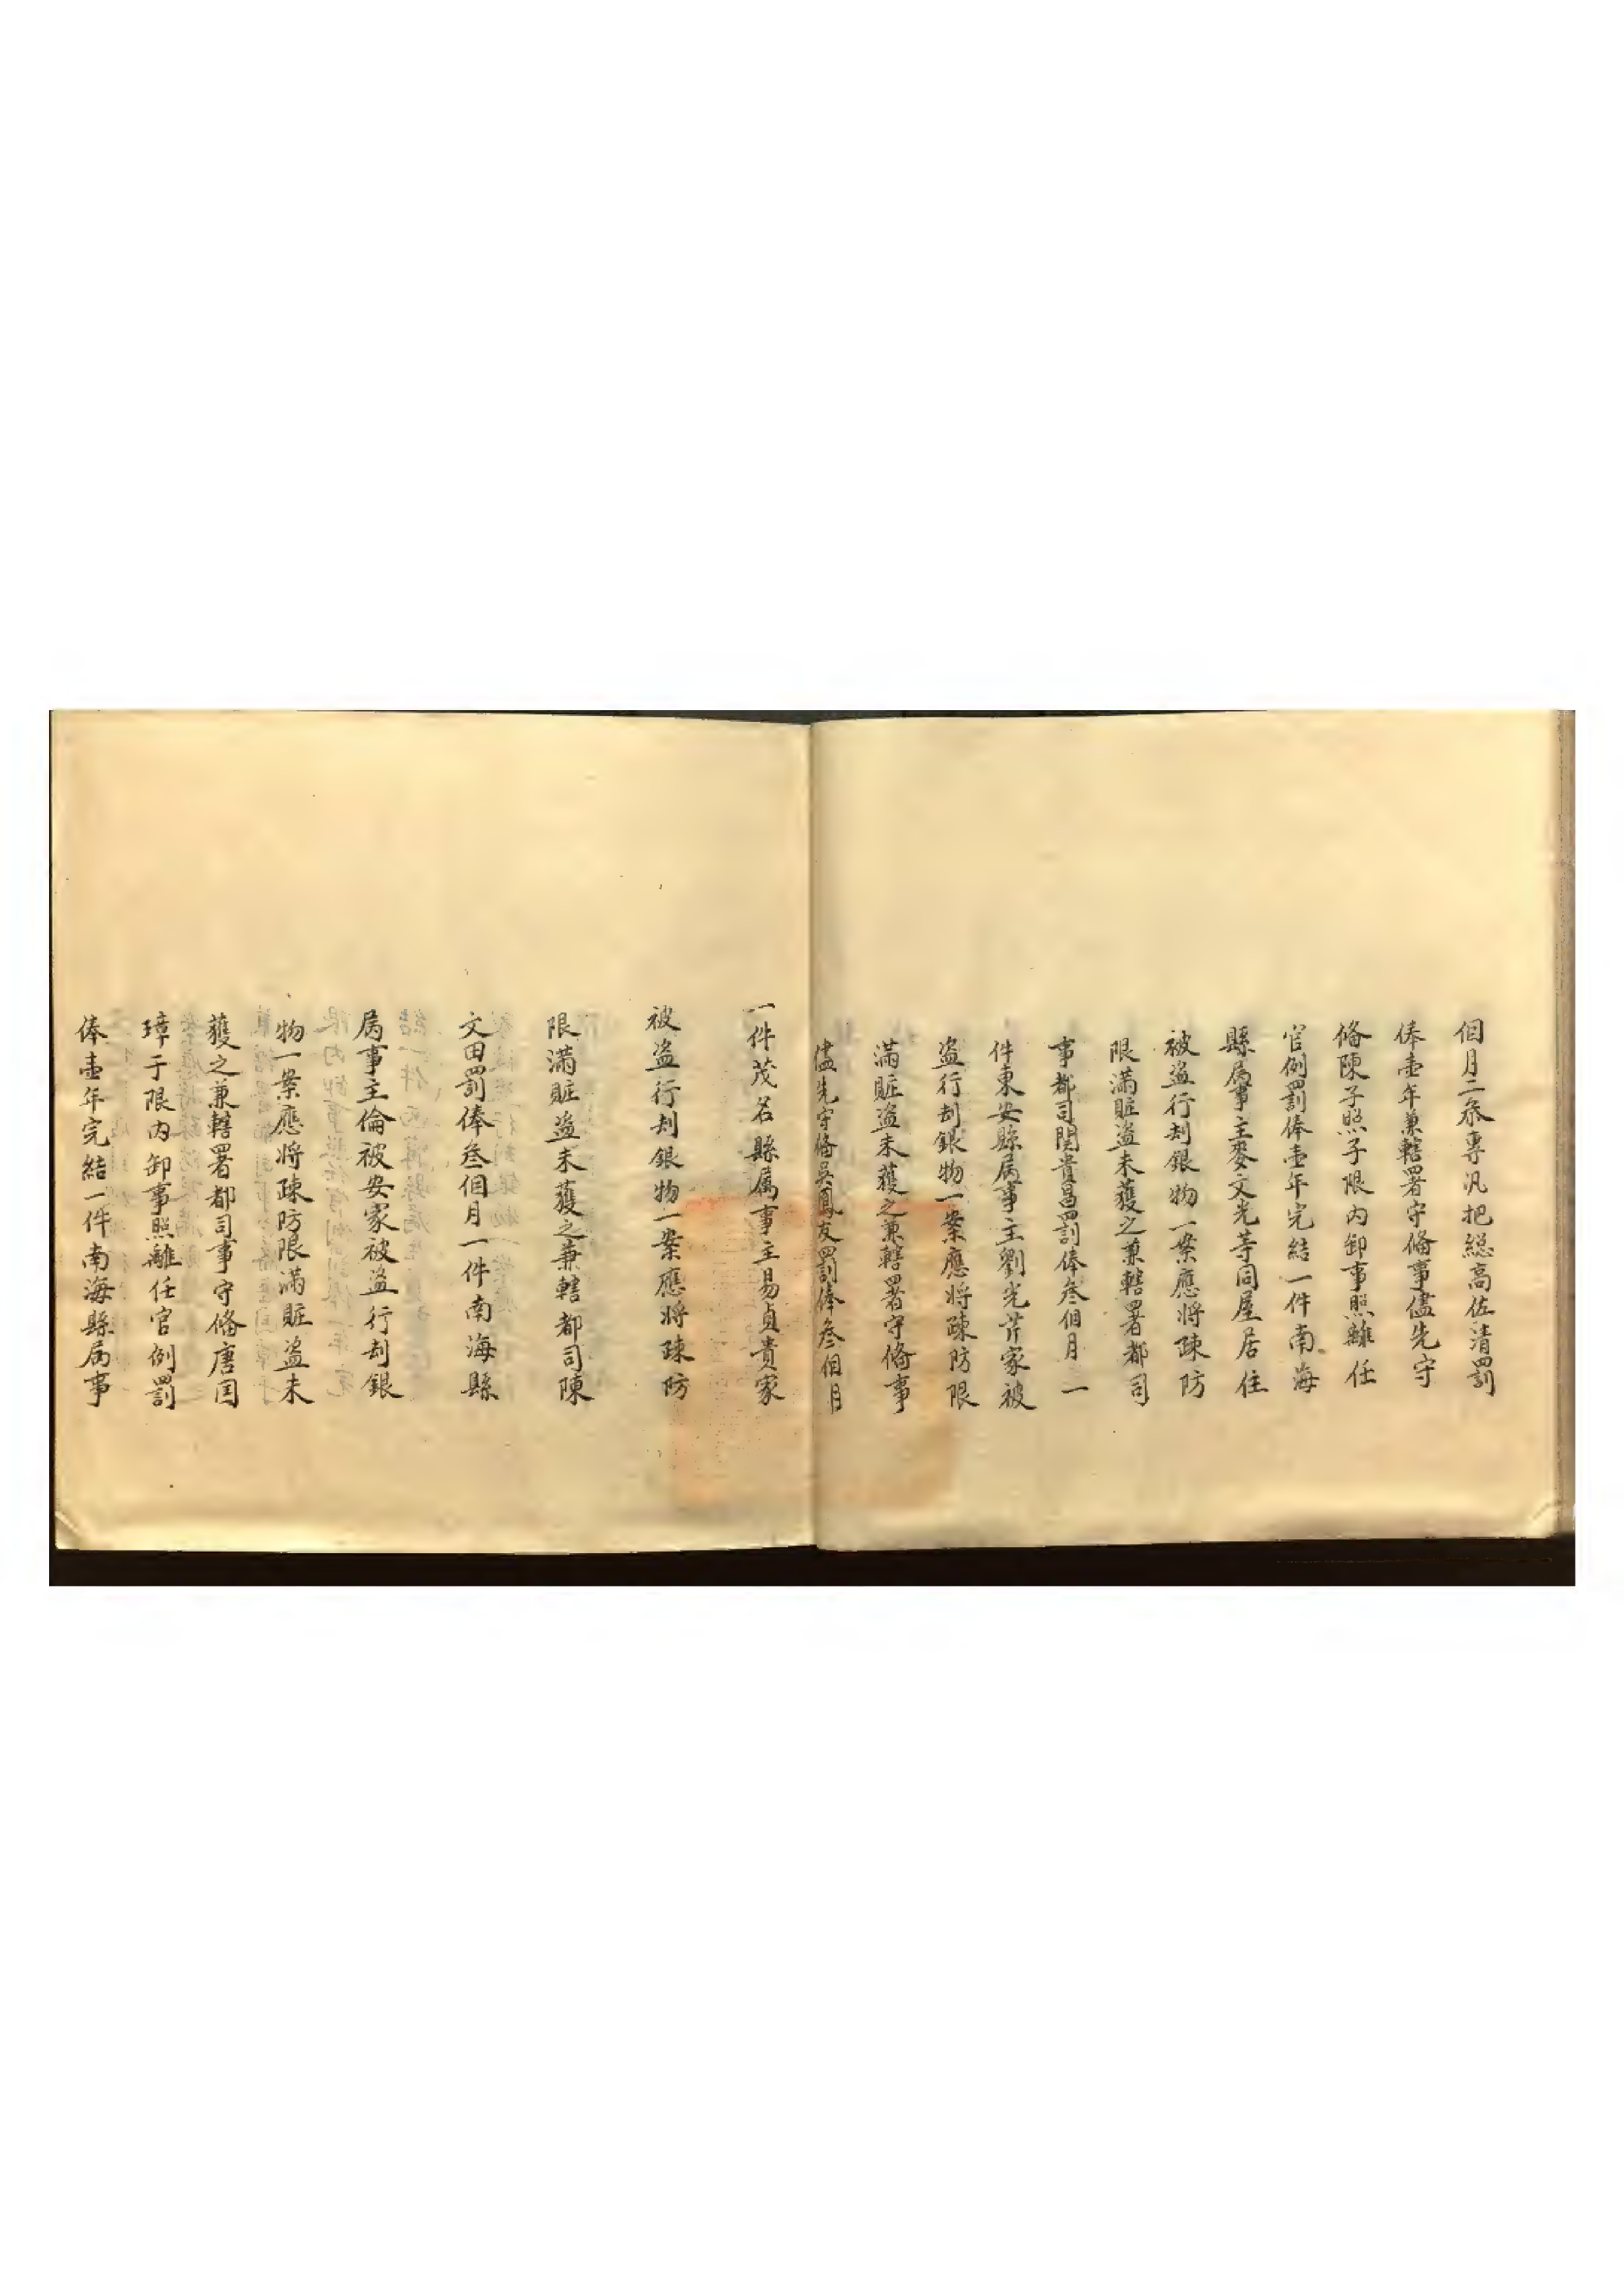 個月二叅專汛把緫髙佐清罰
俸壹年兼轄署守偹事儘先守
偹陳子照于限内卸事照離任
官例罰俸壹年完結一件南海
縣属事主麥文光等同屋居住
被盗行刦銀物一案應将踈防
限滿賍盗未獲之兼轄署都司
事都司関貴昌罰俸叁個月一
件東安縣属事主劉光芹家被
盗行刦銀物一案應将踈防限
滿賍盗未獲之兼轄署守偹事
儘先守偹吳鳳友罰俸叁個月
一件茂名縣属事主易貞貴家
被盗行刦銀物一案應将踈防
限滿賍盗未獲之兼轄都司陳
文田罰俸叁個月一件南海縣
属事主倫被安家被盗行刦銀
物一案應将踈防限滿賍盗未
獲之兼轄署都司事守偹唐国
璋于限内卸事照離任官例罰
俸壹年完結一件南海縣属事